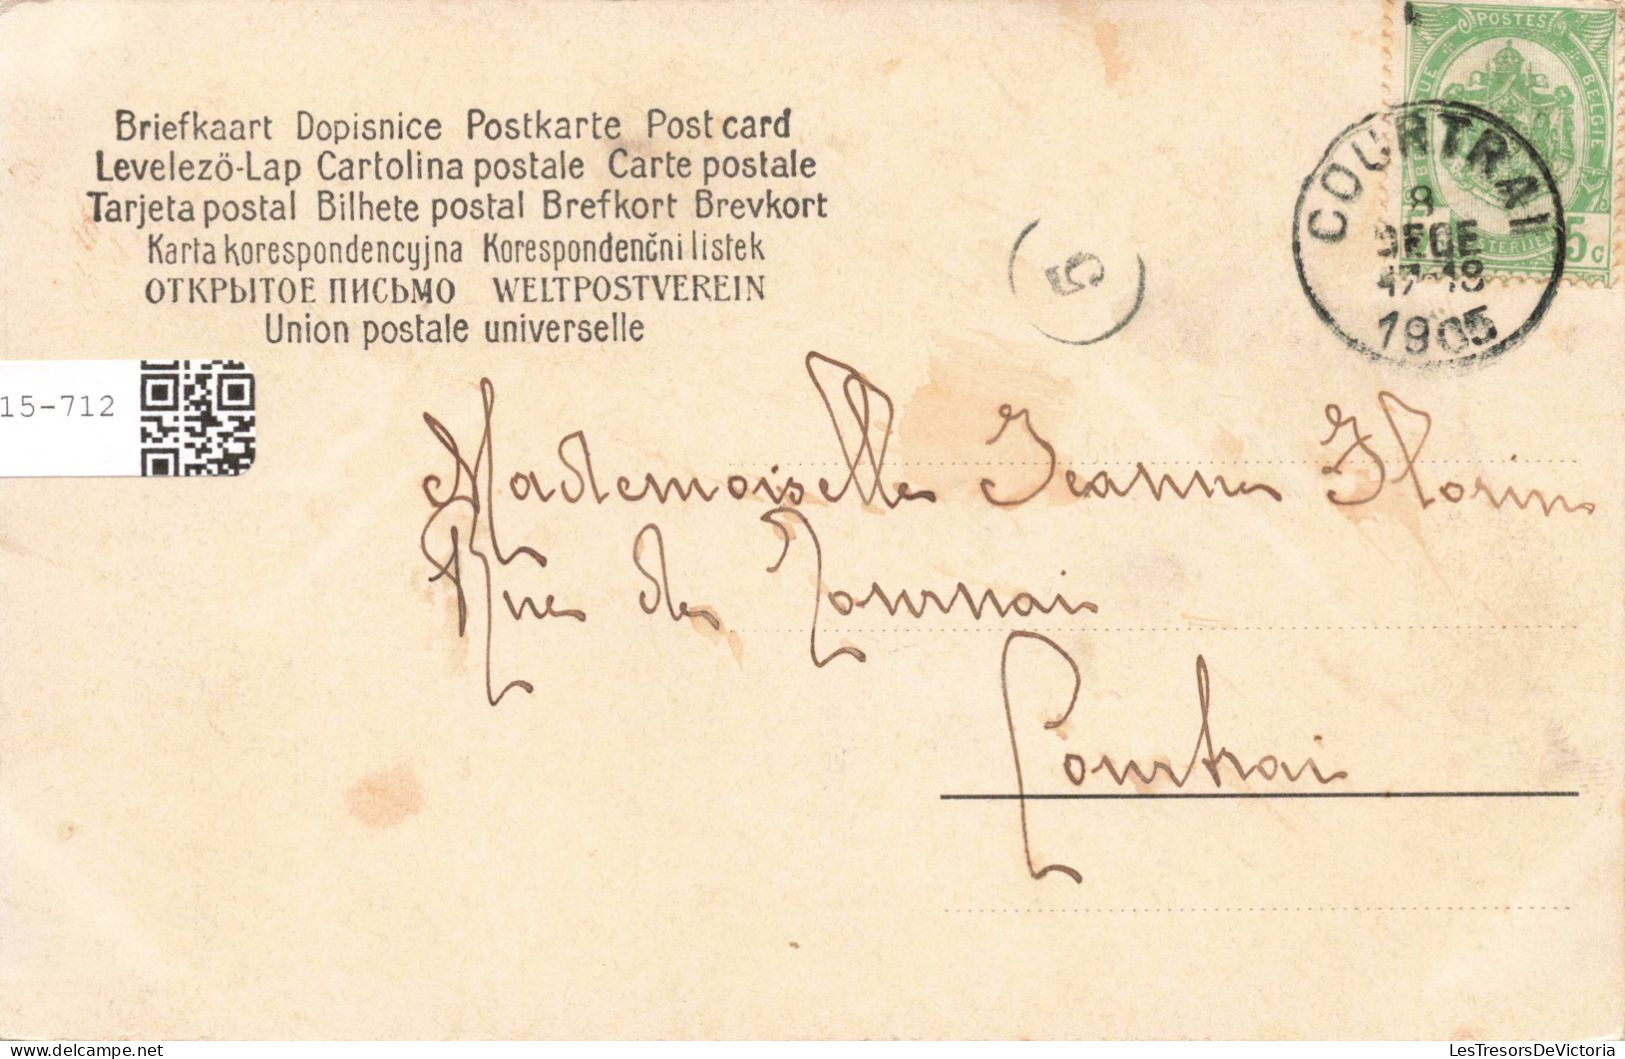 Briefkaart Dopisnice Postkarte Post card
Levelezö-Lap Cartolina postale Carte postale
Tarjeta postal Bilhete postal Brefkort Brevkort
Karta korespondencyjna Korespondenčni listek
ОТКРЫТОЕ ПИСЬМО WELTPOSTVEREIN
Union postale universelle
POSTES
BELGIQUE
BELGIE
5c
COURTRAI
8
DECE
17-18
1905
5
15-712
Mademoiselle Jeanne Florin
Rue de Tournai
Courtrai
LesTresorsDeVictoria